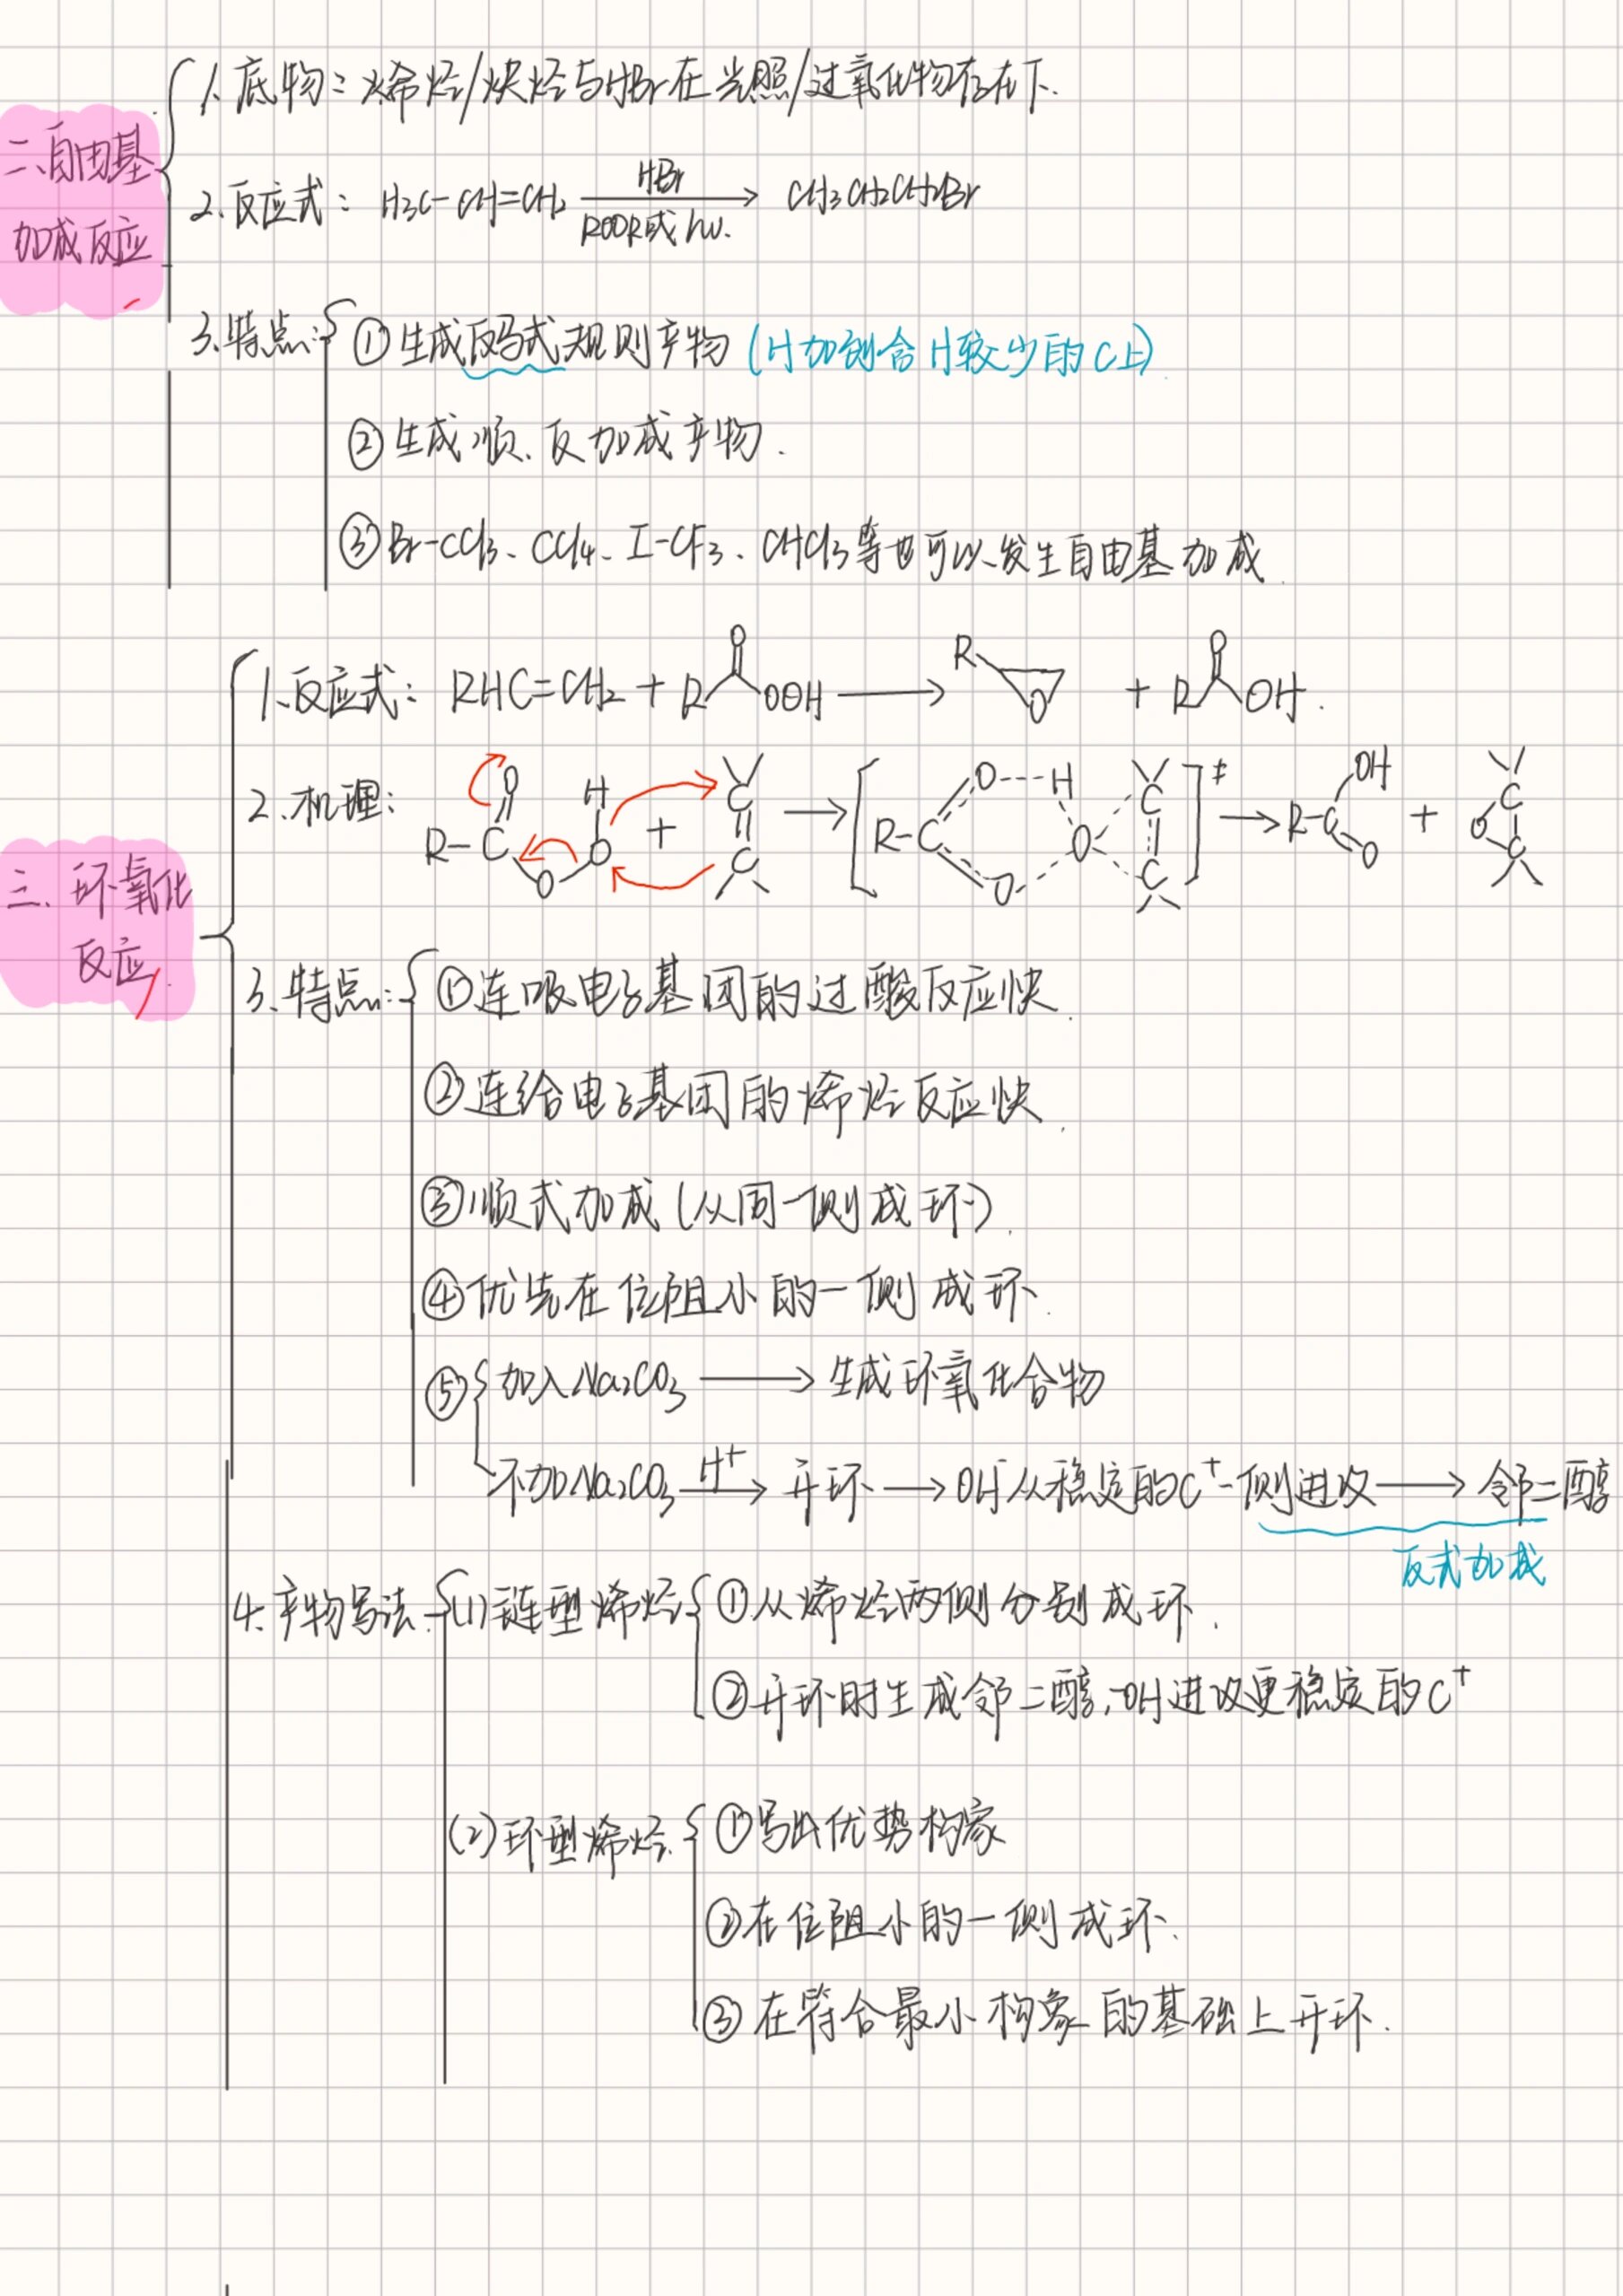 二、自由基加成反应
1、底物：烯烃/炔烃与HBr在光照/过氧化物存在下.
2、反应式：H₃C-CH=CH₂ HBr ROOR或hν. → CH₃CH₂CH₂Br
3、特点：
①生成反马式规则产物（H加到含H较少的C上）
②生成顺、反加成产物.
③Br-CCl₃、CCl₄、I-CF₃、CHCl₃等也可以发生自由基加成.
三、环氧化反应.
1、反应式：RHC=CH₂ + R O OOH → R O + R O OH.
2、机理：R-C O O O H + C=C → [R-C O---H O O C C]‡ → R-C OH O + O C C
3、特点：
①连吸电子基团的过酸反应快.
②连给电子基团的烯烃反应快.
③顺式加成（从同一侧成环）.
④优先在位阻小的一侧成环.
⑤加入Na₂CO₃ → 生成环氧化合物
不加Na₂CO₃ H⁺→ 开环 → OH从稳定的C⁺一侧进攻 → 邻二醇
反式加成
4、产物写法：
(1)链型烯烃
①从烯烃两侧分别成环.
②开环时生成邻二醇，-OH进攻更稳定的C⁺
(2)环型烯烃.
①写出优势构象
②在位阻小的一侧成环.
③在符合最小构象的基础上开环.